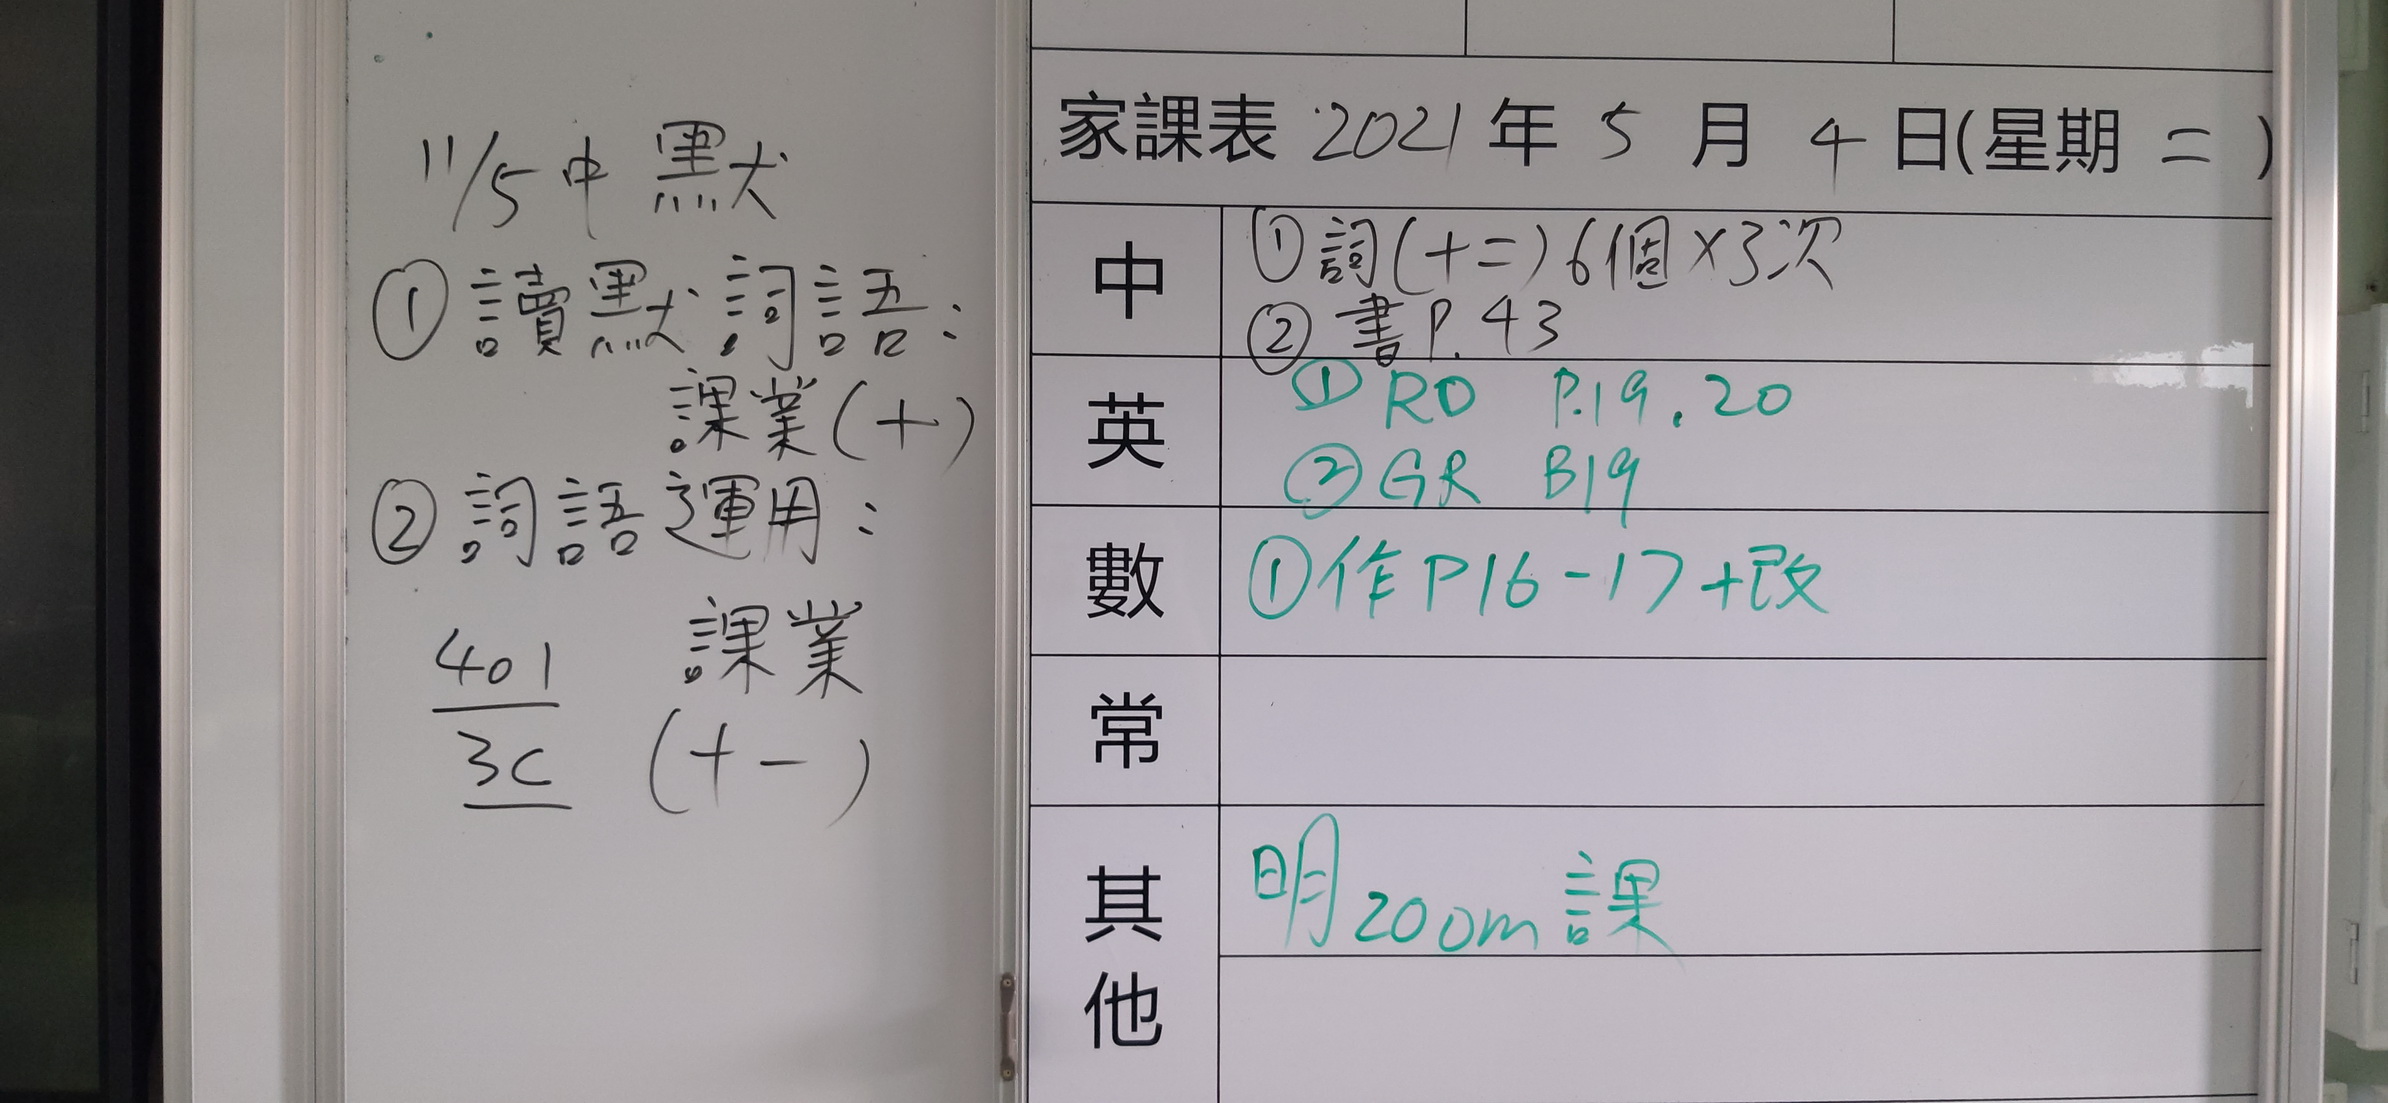 11/5 中 默
① 讀默詞語：
課業(十)
② 詞語運用：
課業
(十一)
401
3C
家課表 2021 年 5 月 4 日(星期 二 )
中
① 詞(十二)6個×3次
② 書P.43
英
① RD P.19.20
② GR B19
數
① 作P16-17+改
常
其他
明zoom課